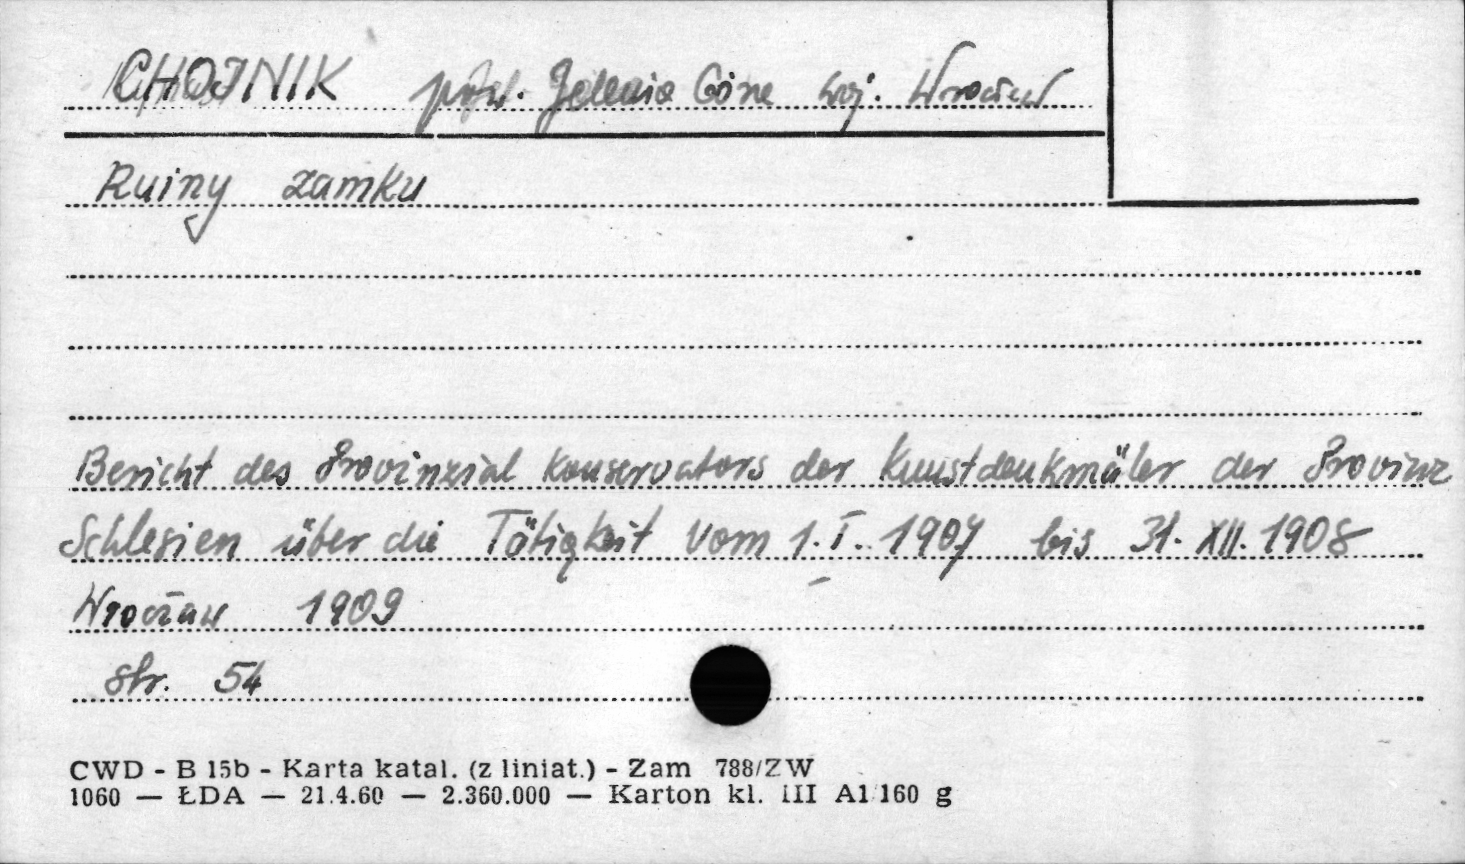 CHOJNIK pow. Jelenia Góra woj. Wrocław
Ruiny zamku
Bericht des Provinzial Konservators der Kunstdenkmäler der Provinz
Schlesien über die Tätigkeit vom 1.I.1907 bis 31.XII.1908
Wrocław 1909
str. 54
CWD - B 15b - Karta katal. (z liniat.) - Zam 788/ZW
1060 — ŁDA — 21.4.60 — 2.360.000 — Karton kl. III A1 160 g